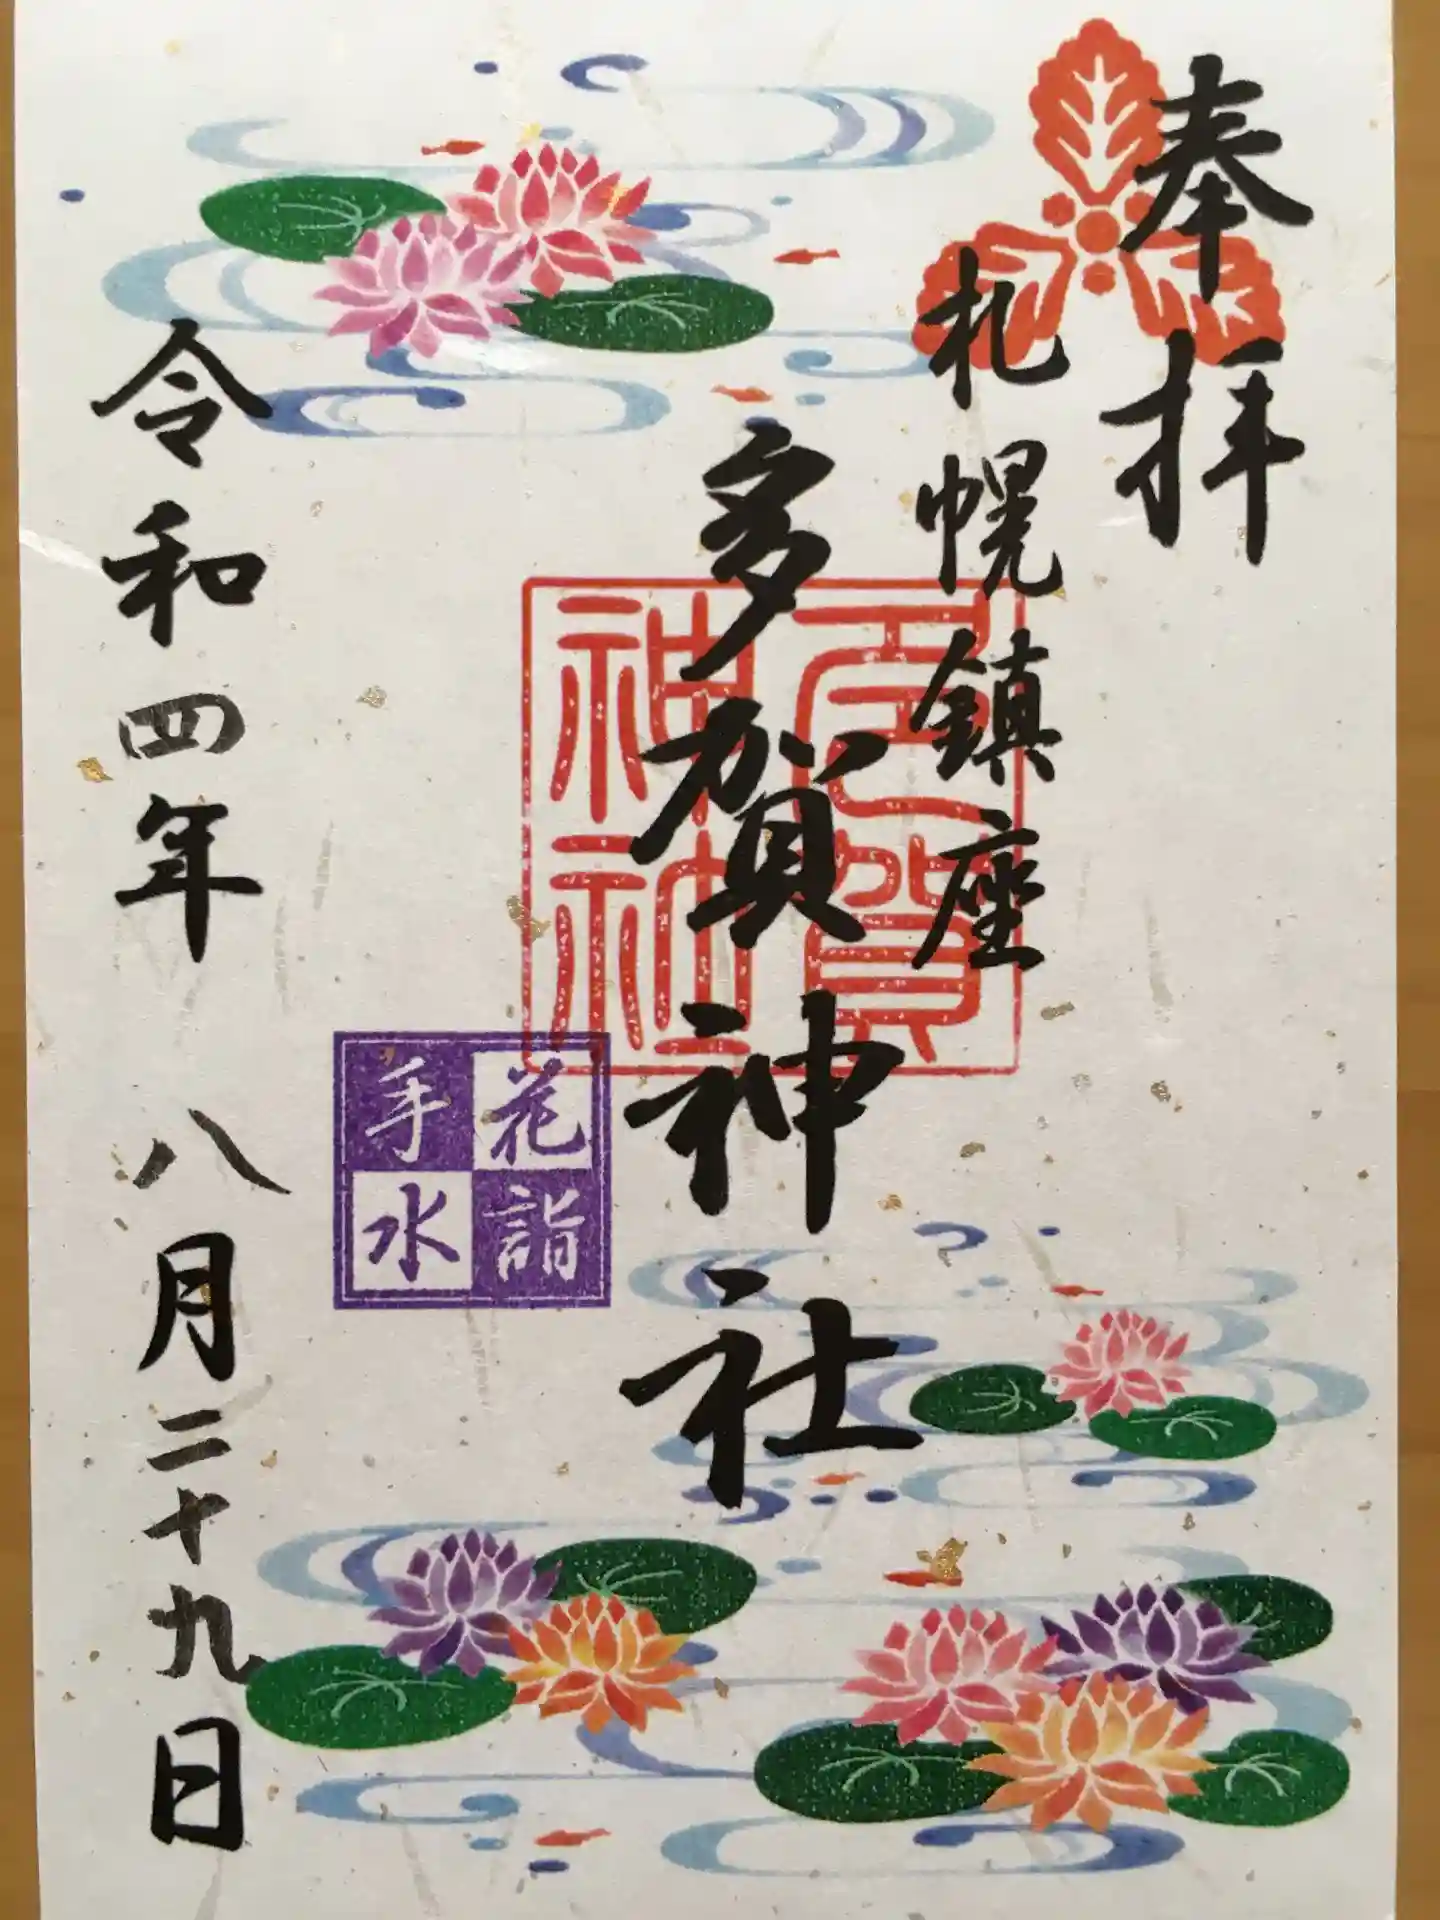 奉拝
札幌鎮座
多賀神社
多賀
神社
花詣
手水
令和四年 八月二十九日